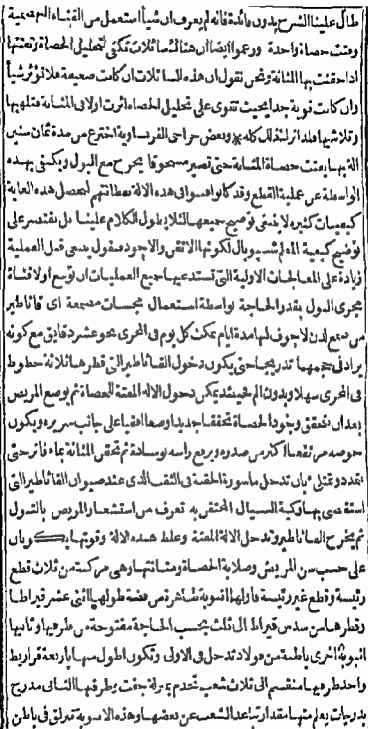 طال علينا الشرح بدون فائدة فانه لم يعرف ان شيأ استعمل من القناة
وفتت حصاة واحدة وزعموا ايضا ان هناك سائلات تكفي لتحليل الحصاة وتفتتها
اذا حقنت بها المثانة ونحن نقول ان هذه السائلات ان كانت ضعيفة فلا تؤثر شيأ
وان كانت قوية جدا بحيث تقوى على تحليل الحصاة اثرت اولا في المثانة فتلهبها
وتلاشيها فلذا تركنا ذلك كله وبعض جراحي الفرنساوية اخترع من مدة ثمان سنين
آلة بها يفتت حصاة المثانة حتى تصير مسحوقا يخرج مع البول ويكتفى بهذه
الواسطة عن عملية القطع وقد كانوا في هذه الآلة لتحصل هذه الغاية
كيفيات كثيرة لا ينبغي توضيح جميعها لئلا يطول الكلام علينا بل نقتصر على
توضيح كيفية المعلم سيويال لكونها الاتقى والاجود فنقول ينبغي قبل العملية
زيادة على المعالجات الاولية التي تستدعيها جميع العمليات ان توسع اولا قناة
مجرى البول بقدر الحاجة بواسطة استعمال مجسات مصمغة اي قاثاطير
من صمغ لدن لا جوف لها مدة ايام يمكث كل يوم في المجرى نحو عشر دقايق مع كونه
يراد في حجمها تدريجا حتى يكون دخول القاثاطير التي قطرها ثلاثة خطوط
في المجرى سهلا وبدون الم فحينئذ يمكن دخول الآلة المفتتة للحصاة ثم يوضع المريض
بعد ان تحقق وجود الحصاة تحققا جديدا وضعا افقيا على جانب سريره ويكون
حوضه مرتفعا اكثر من صدره ويرفع راسه بوسادة ثم تحقن المثانة بماء فاتر حتى
تتمدد وتمتلئ بان تدخل ماسورة الحقنة في الثقب الذي عند صيوان القاثاطير التي
استقصى بها وكمية السيال المحتقن به تعرف من استشعار المريض بالتبول
ثم يخرج القاثاطير وتدخل الآلة المفتتة وغلظ هذه الآلة وقوتها يكونان
على حسب سن المريض وصلابة الحصاة ومتانتها وهي مركبة من ثلاث قطع
رئيسة وقطع غير رئيسة فاولها انبوبة ظاهرة من فضة طولها اثنى عشر قيراطا
وقطرها من سدس قيراط الى ثلث بحسب الحاجة مفتوحة من طرفيها وثانيها
انبوبة اخرى باطنة من فولاذ تدخل في الاولى وتكون اطول منها باربعة قراريط
واحد طرفيها منقسم الى ثلاث شعب تخدم بمنزلة جفت وطرفها الثاني مدرج
بدرجات يعلم منها مقدار تباعد الشعب عن بعضها وهذه الانبوبة تنزلق في باطن